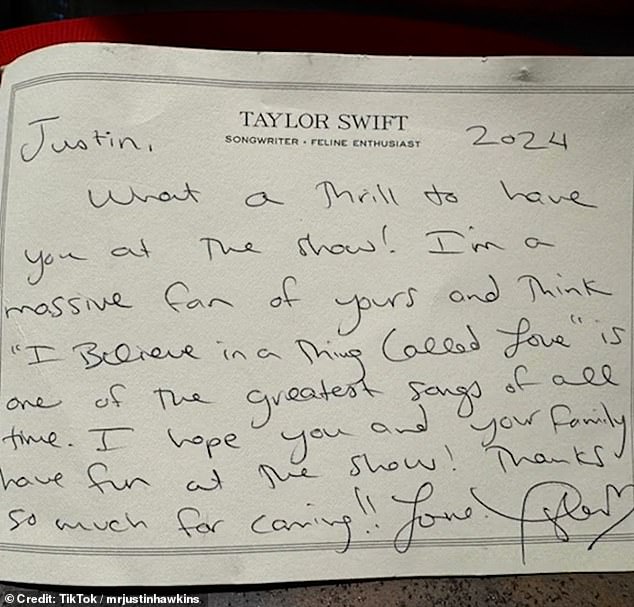 TAYLOR SWIFT
SONGWRITER • FELINE ENTHUSIAST
Justin, 2024
What a Thrill to have
you at The show! I'm a
massive fan of yours and Think
"I Believe in a Thing Called Love" is
one of The greatest songs of all
time. I hope you and your family
have fun at The show! Thanks
so much for caring!! Love! Taylor
© Credit: TikTok / mrjustinhawkins